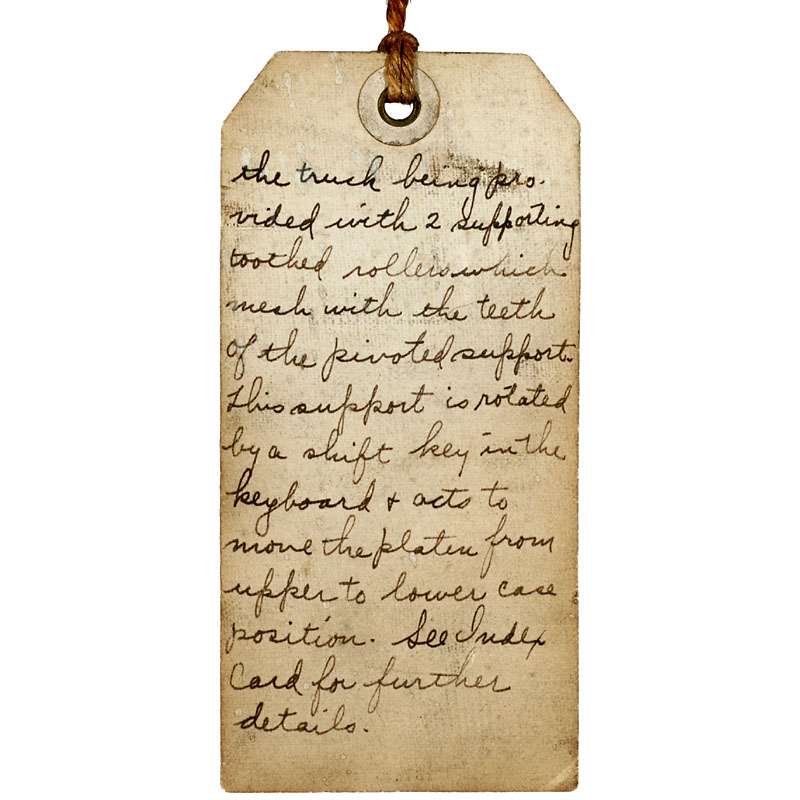 the truck being pro-
vided with 2 supporting
toothed rollers which
mesh with the teeth
of the pivoted support.
This support is rotated
by a shift key in the
keyboard & acts to
move the platen from
upper to lower case
position. See Index
Card for further
details.